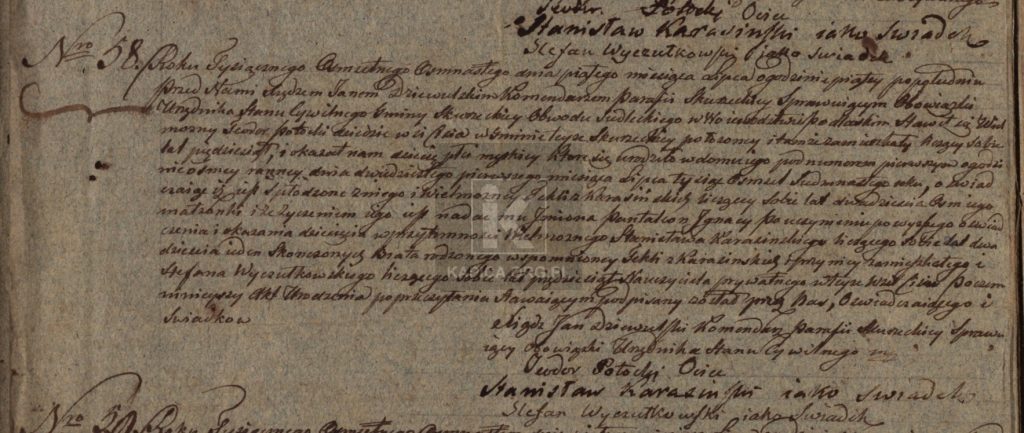 Teodor Potocki Ociec
Stanisław Karasinski iako Swiadek
Stefan Wyczutkowski iako Swiadek
Nro 58. Roku Tysiącznego Osmsetnego Osmnastego dnia piątego miesiąca Lipca o godzinie piątey popołudniu
Przed Nami Xiędzem Janem Dziewulskim Komendarzem Parafii Skurzeckiey Sprawuiącym Obowiązki
Urzędnika Stanu Cywilnego Gminy Skurzeckiey Obwodu Siedleckiego w Woiewodztwie Podlaskim Stawił się Wiel
morzny Teodor Potocki dziedzic wsi w Gminie teyze Skurzeckiey położoney i tamże zamieszkały liczący sobie
lat pięcdziesiąt, i okazał nam dziecie płci męskiey ktore się urodziło w domu iego pod numerem pierwszym o godzi
nie osmey ranney dnia dwudziestego pierwszego miesiąca Lipca tysiąc Osmset Siedmnastego roku, oswiad
czaiąc iż iest spłodzone z niego i Wielmorzney Tekli z Karasińskich liczącey sobie lat dwadziescia Osm iego
małzonki i że życzeniem iego iest nadać mu Imiona Pantaleon Ignacy Po uczynieniu powyzszego oswiad
czenia i okazania dziecięcia w przytomności Wielmoznego Stanisława Karasinskiego liczącego sobie lat dwa
dziescia ieden skonczonych Brata rodzonego wspomnioney Tekli z Karasinskich i przy niey zamieszkałego i
Stefana Wyczutkowskiego liczącego sobie lat pięcdziesiąt Nauczyciela prywatnego w teyze Wsi Poczem
ninieyszy Akt Urodzenia po przeczytaniu Stawaiącym podpisany został przez Nas, Oswiadczaiącego i
Swiadkow
Xiądz Jan Dziewulski Komendarz Parafii Skurzeckiey Sprawu
iący Obowiązki Urzędnika Stanu Cywilnego
Teodor Potocki Ociec
Stanisław Karasinski iako swiadek
Stefan Wyczutkowski iako Swiadek
KASICA.ORG.PL
Nro 59. Roku Tysiącznego Osmsetnego